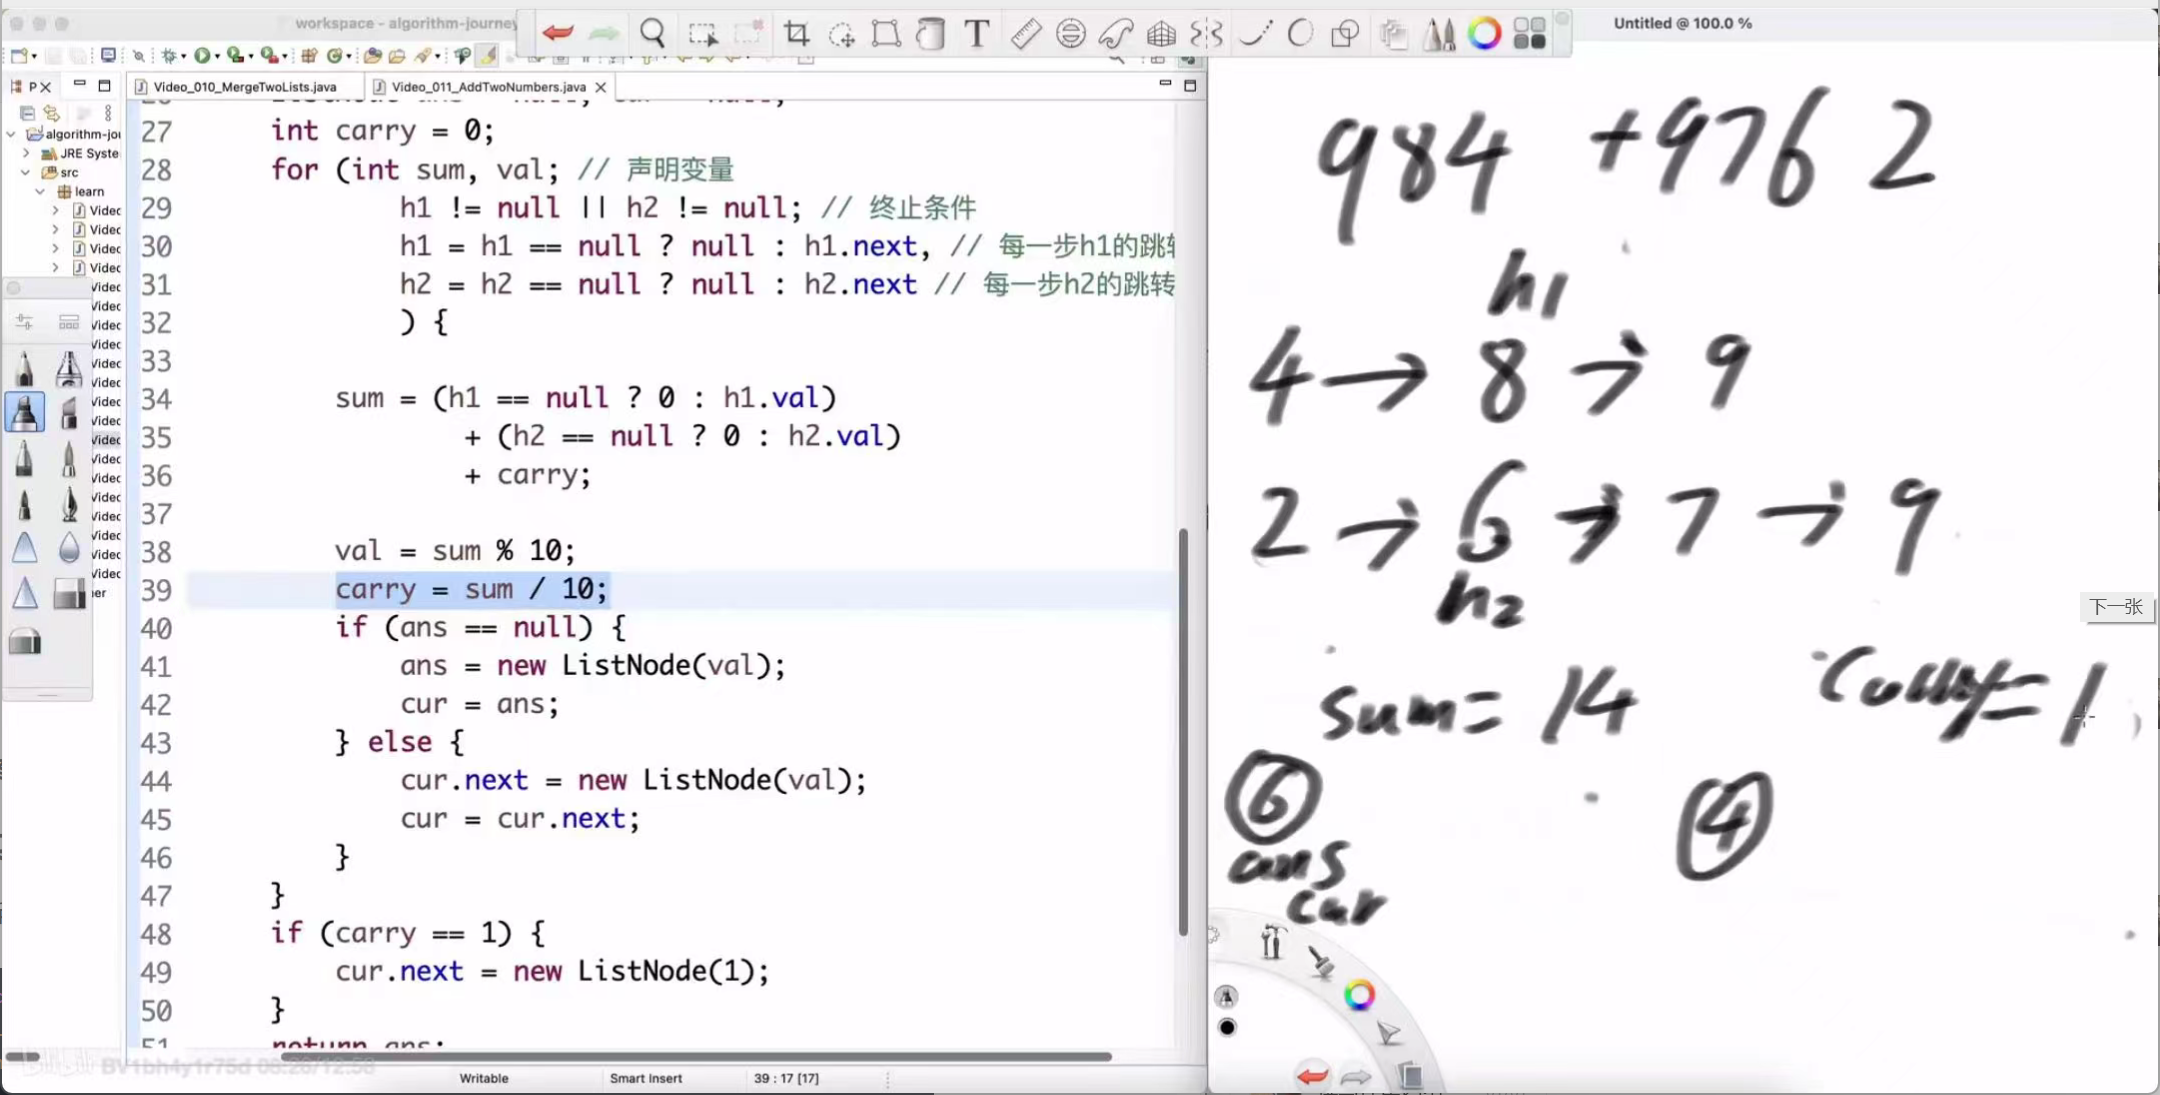 workspace - algorithm-journey
Untitled @ 100.0 %
P
Video_010_MergeTwoLists.java
Video_011_AddTwoNumbers.java
algorithm-jou
JRE Syste
src
learn
Videc
Videc
Videc
Videc
Videc
Videc
Videc
Videc
Videc
Videc
Videc
Videc
Videc
Videc
Videc
Videc
Videc
Videc
Videc
Videc
er
27 int carry = 0;
28 for (int sum, val; // 声明变量
29 h1 != null || h2 != null; // 终止条件
30 h1 = h1 == null ? null : h1.next, // 每一步h1的跳
31 h2 = h2 == null ? null : h2.next // 每一步h2的跳转
32 ) {
33
34 sum = (h1 == null ? 0 : h1.val)
35 + (h2 == null ? 0 : h2.val)
36 + carry;
37
38 val = sum % 10;
39 carry = sum / 10;
40 if (ans == null) {
41 ans = new ListNode(val);
42 cur = ans;
43 } else {
44 cur.next = new ListNode(val);
45 cur = cur.next;
46 }
47 }
48 if (carry == 1) {
49 cur.next = new ListNode(1);
50 }
51 return ans;
BV1bh4y1r75d 08:26/12:58
Writable
Smart Insert
39 : 17 [17]
984 + 9762
h1
4 → 8 → 9
2 → 6 → 7 → 9
h2
下一张
sum = 14
carry = 1
6
4
ans
cur